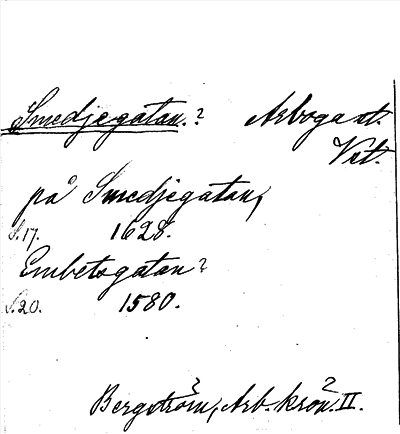 Smedjegatan.? Arboga st.
Vstl.
på Smedjegatan,
S.17. 1628.
Embetsgatan?
S.20. 1580.
Bergström, Arb. krön. II.